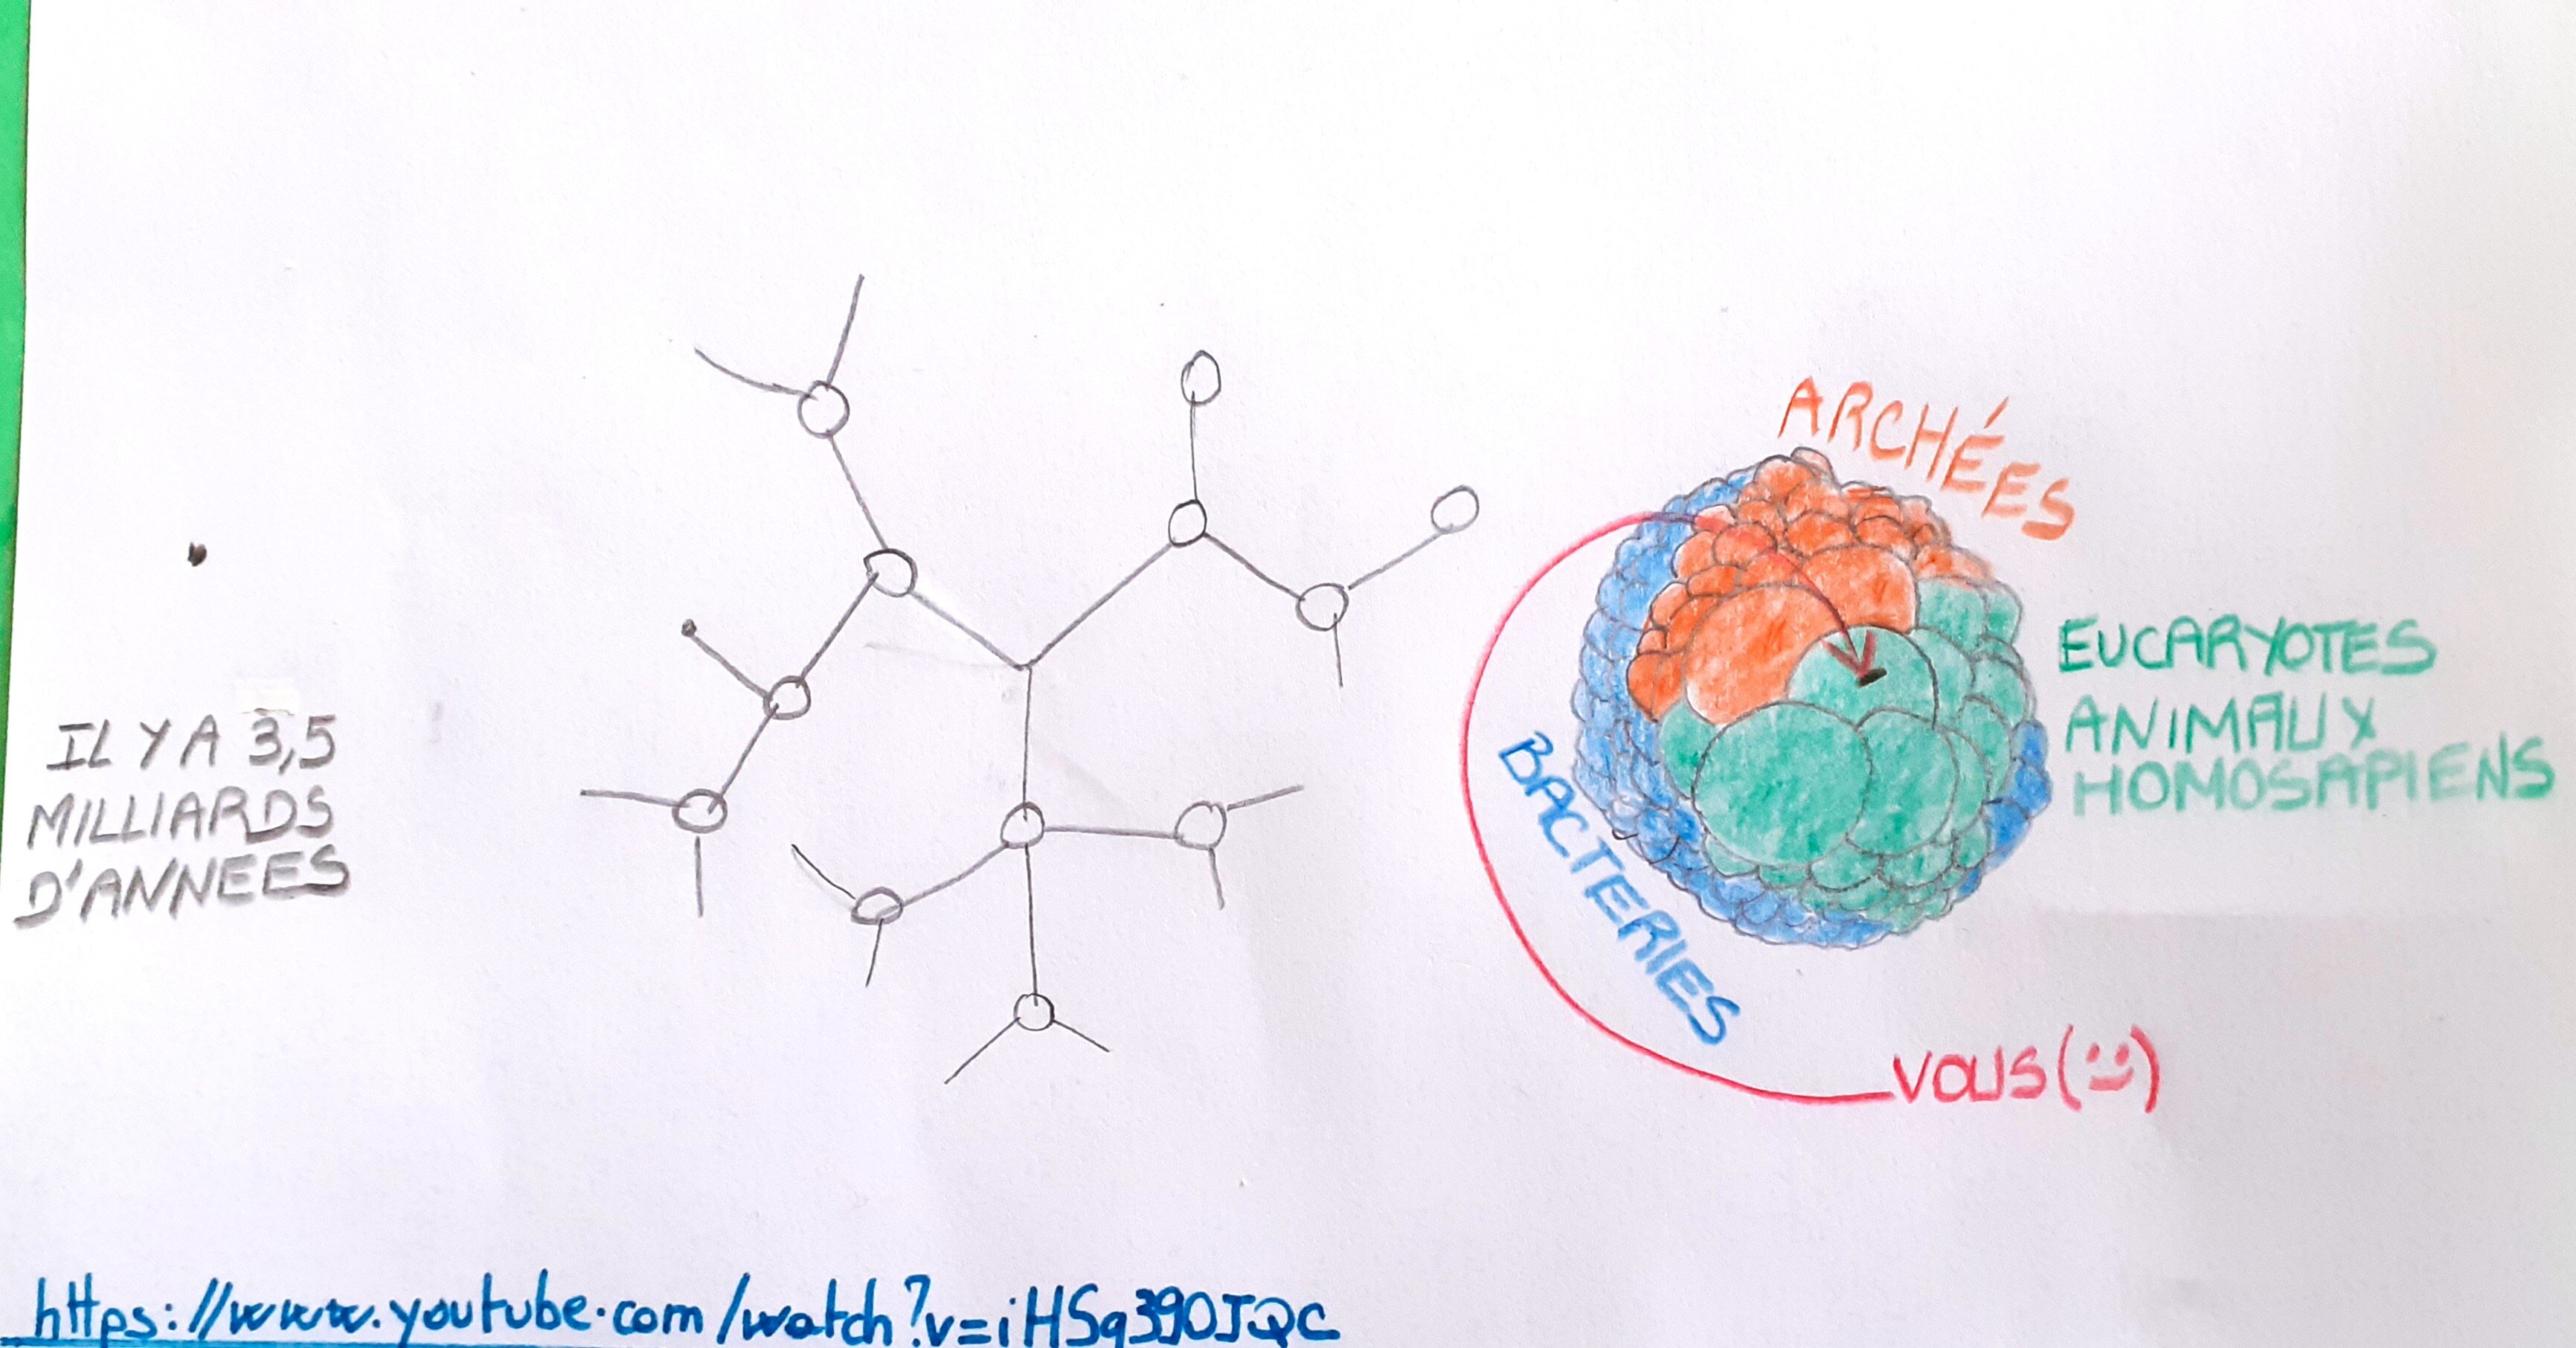 IL Y A 3,5
MILLIARDS
D'ANNEES
ARCHÉES
EUCARYOTES
ANIMAUX
HOMOSAPIENS
BACTERIES
VOUS(:))
https://www.youtube.com/watch?v=iHSq390JQC